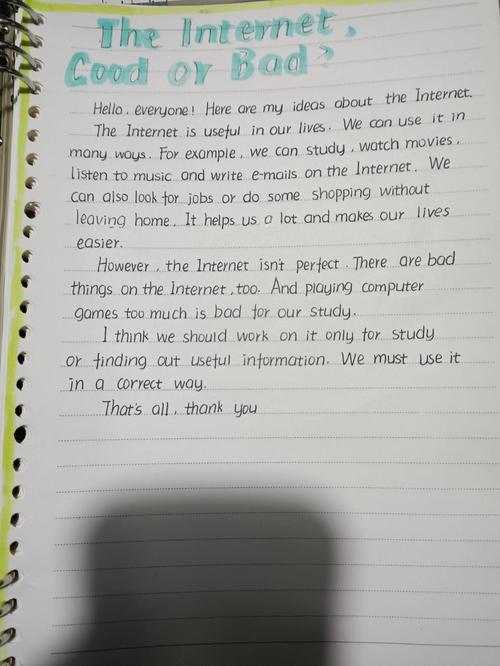 The Internet,
Good or Bad?
Hello, everyone! Here are my ideas about the Internet.
The Internet is useful in our lives. We can use it in
many ways. For example, we can study, watch movies,
listen to music and write e-mails on the Internet. We
can also look for jobs or do some shopping without
leaving home. It helps us a lot and makes our lives
easier.
However, the Internet isn't perfect. There are bad
things on the Internet, too. And playing computer
games too much is bad for our study.
I think we should work on it only for study
or finding out useful information. We must use it
in a correct way.
That's all, thank you